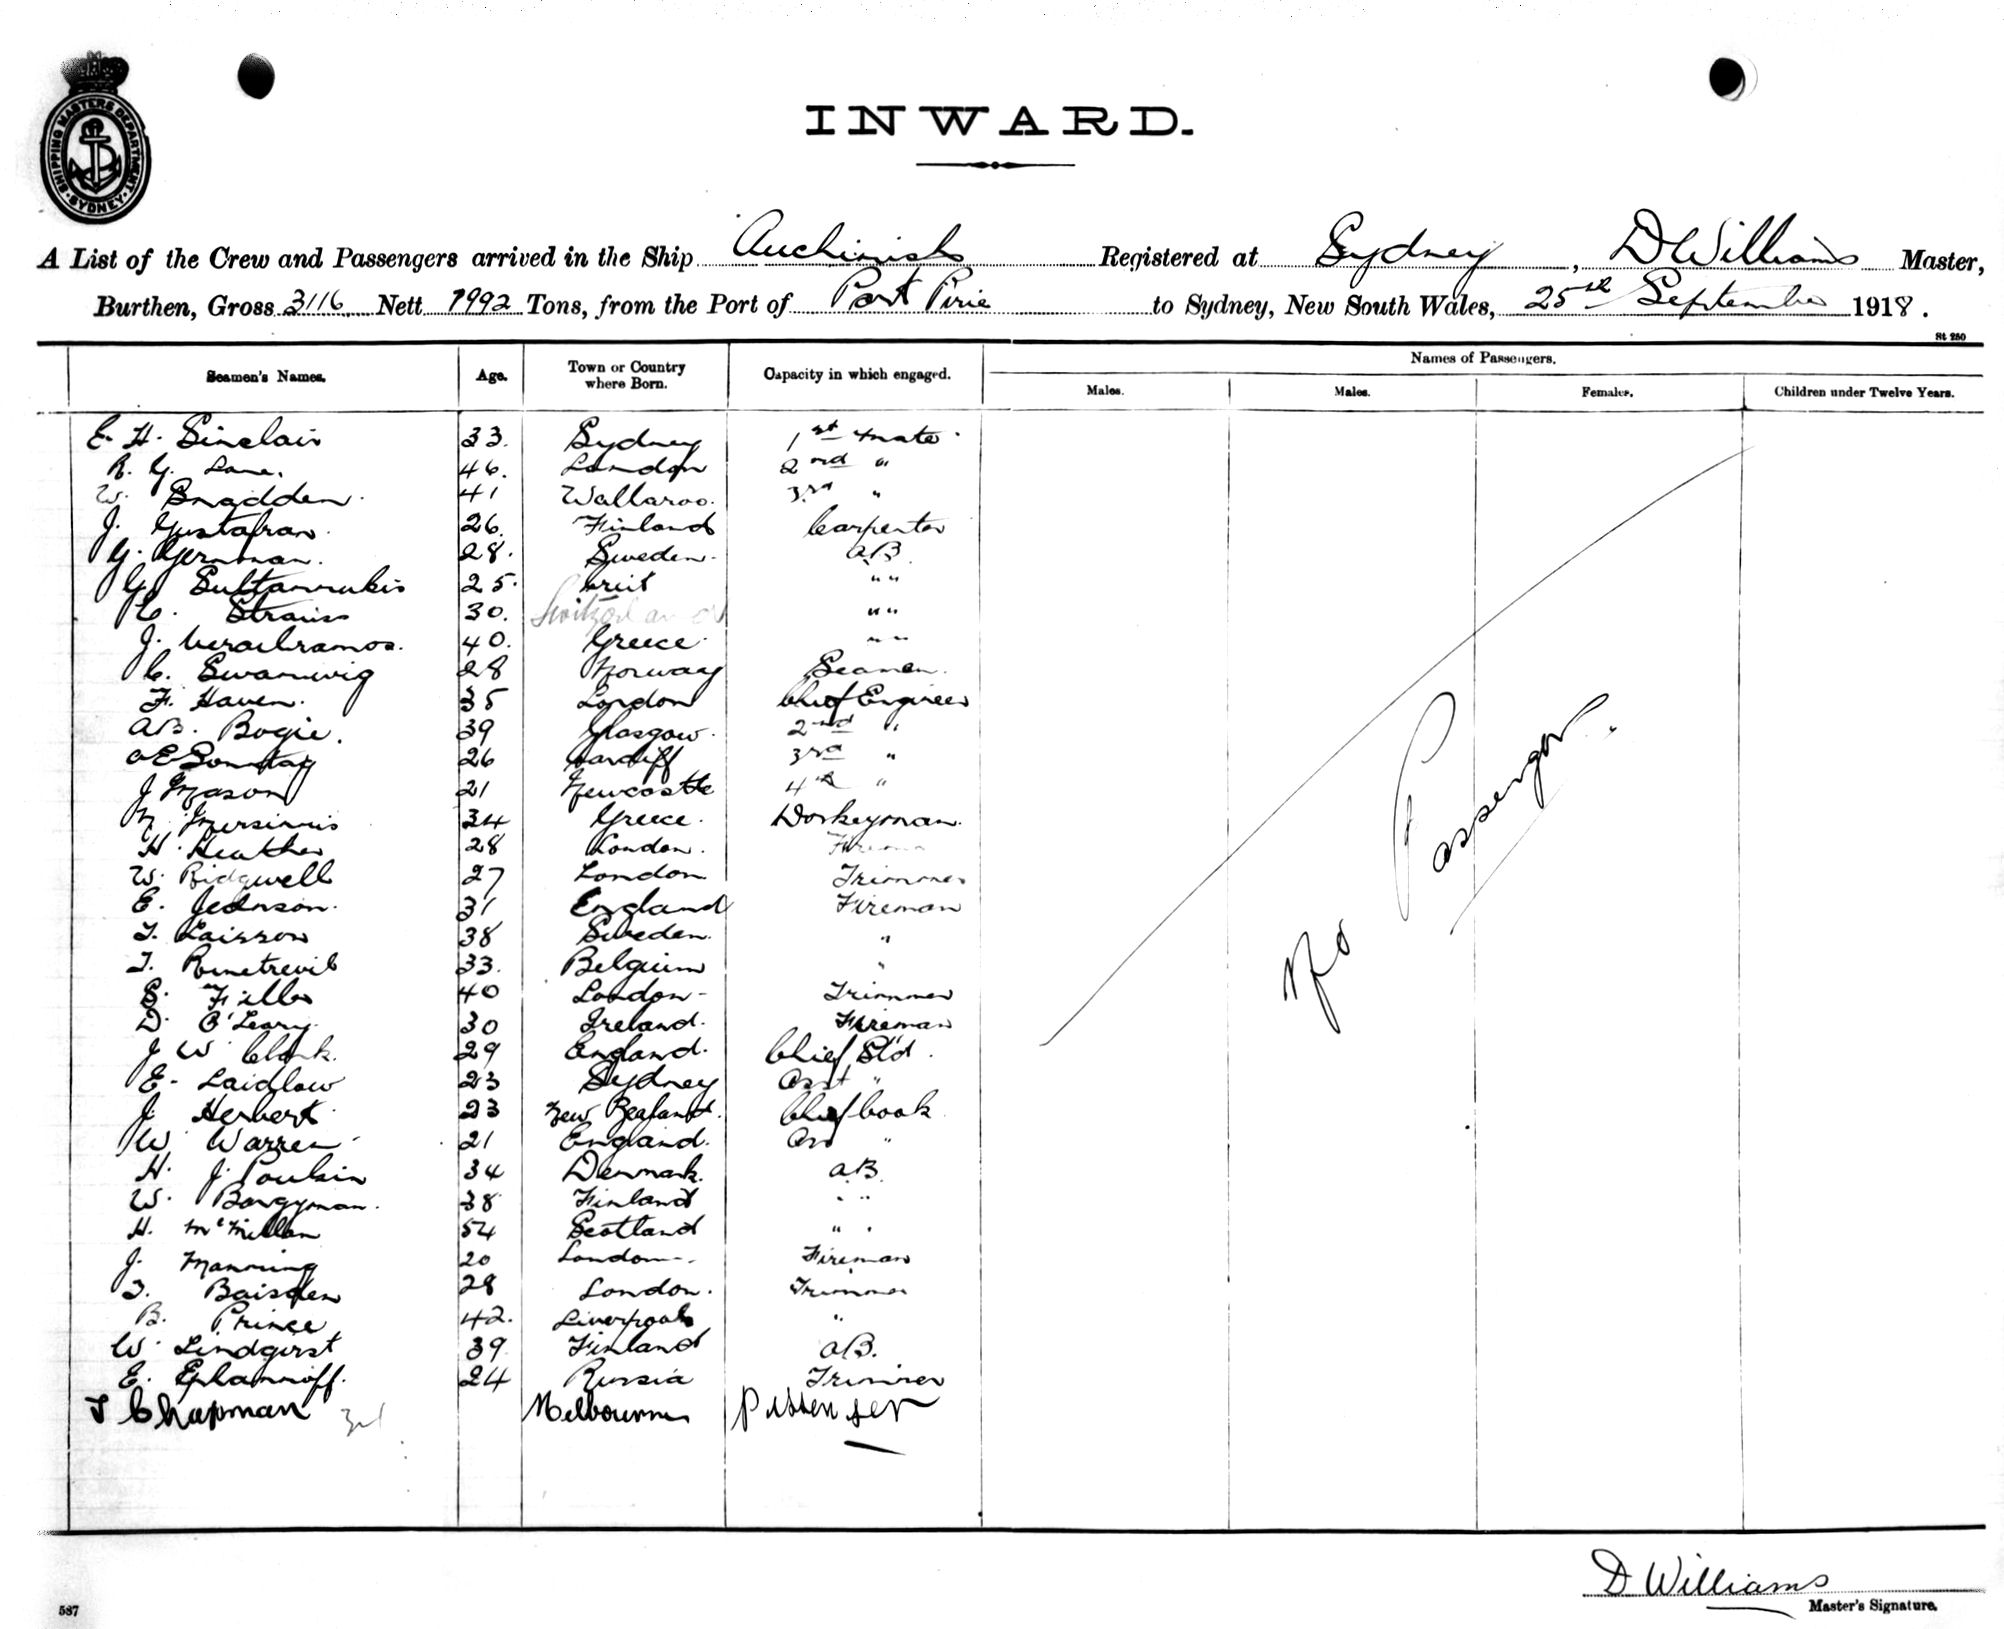 SHIPPING MASTERS DEPARTMENT · SYDNEY ·
INWARD.
A List of the Crew and Passengers arrived in the Ship Auchinish Registered at Sydney, D Williams Master,
Burthen, Gross 3116 Nett 1992 Tons, from the Port of Port Pirie to Sydney, New South Wales, 25th September 1918.
St 250
Seamen's Names. Age. Town or Country where Born. Capacity in which engaged. Names of Passengers.
Males. Males. Females. Children under Twelve Years.
E. H. Sinclair 33. Sydney 1st Mate
R. G. Lane. 46. London 2nd "
W. Snadden 41 Wallaroo. 3rd "
J. Gustafson 26. Finland Carpenter
G. 28. Sweden. AB.
G. 25. " "
C. Strauss 30. Switzerland " "
J. 40. Greece " "
C. Swanwig 28 Norway Seaman.
F. Haven. 35 London Chief Engineer
AB. Bogie. 39 Glasgow. 2nd "
26 Cardiff 3rd "
J Mason 21 Newcastle 4th "
N. 34 Greece. Donkeyman.
H. Heather 28 London. Fireman
W. Ridgwell 27 London Trimmer
E. 31 England Fireman
T. 38 Sweden. "
T. 33. Belgium "
S. 40 London - Trimmer
D. O'Leary 30 Ireland. Fireman
J W Clark. 29 England. Chief Std.
E. Laidlaw 23 Sydney Asst "
J. Herbert 23 New Zealand. Chief Cook
W. Warren 21 England. Ass "
H. J. Poulsin 34 Denmark. AB
W. 38 Finland " "
H. McMillan 54 Scotland " "
J. Manning 20 London Fireman
T. Baisden 28 London. Trimmer
B. Prince 42. Liverpool "
W. Lindqvist 39 Finland AB.
E. 24 Russia Trimmer
T Chapman Melbourne Passenger
No Passengers
D Williams
Master's Signature.
587